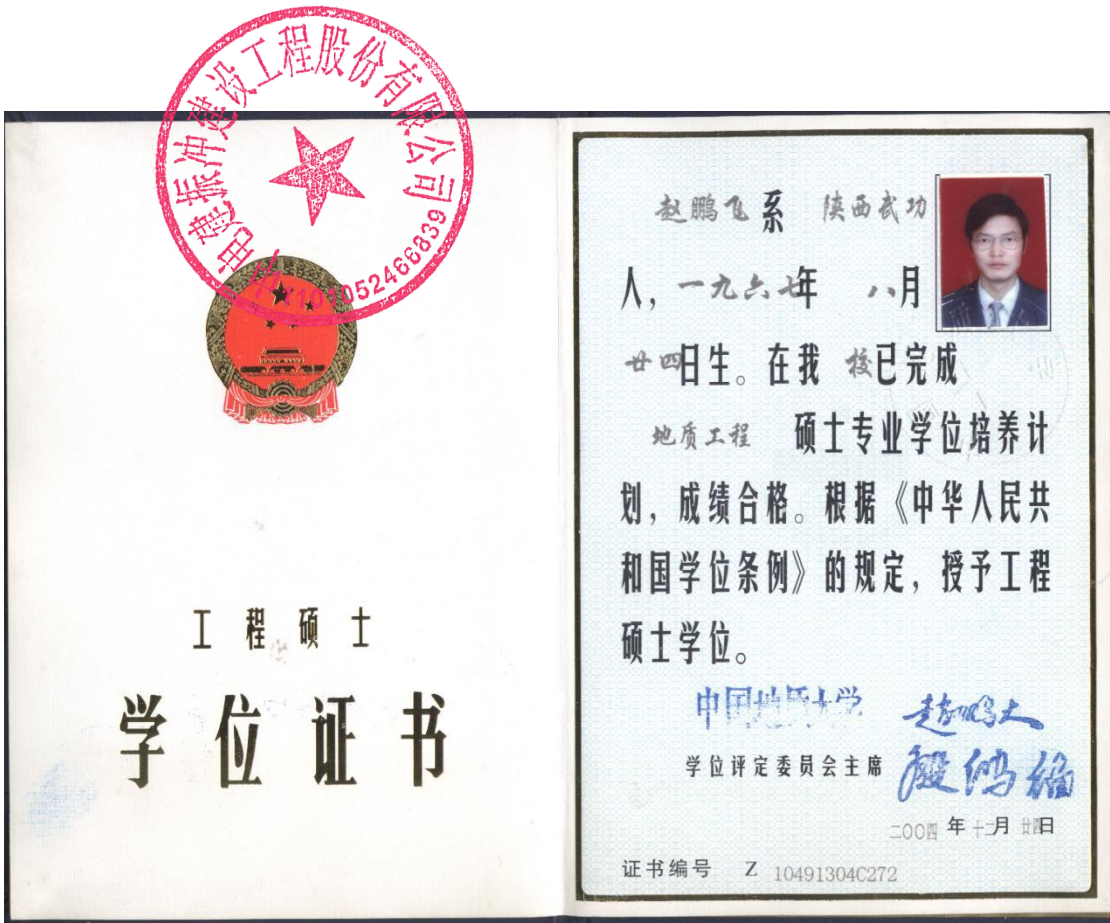 电建振冲建设工程股份有限公司
工程硕士
学位证书
赵鹏飞系 陕西武功
人，一九六七年 八月
廿四日生。在我 校已完成
地质工程 硕士专业学位培养计
划，成绩合格。根据《中华人民共
和国学位条例》的规定，授予工程
硕士学位。
中国地质大学 赵鹏大
学位评定委员会主席 殷鸿福
二〇〇四年十二月廿四日
证书编号 Z 10491304C272